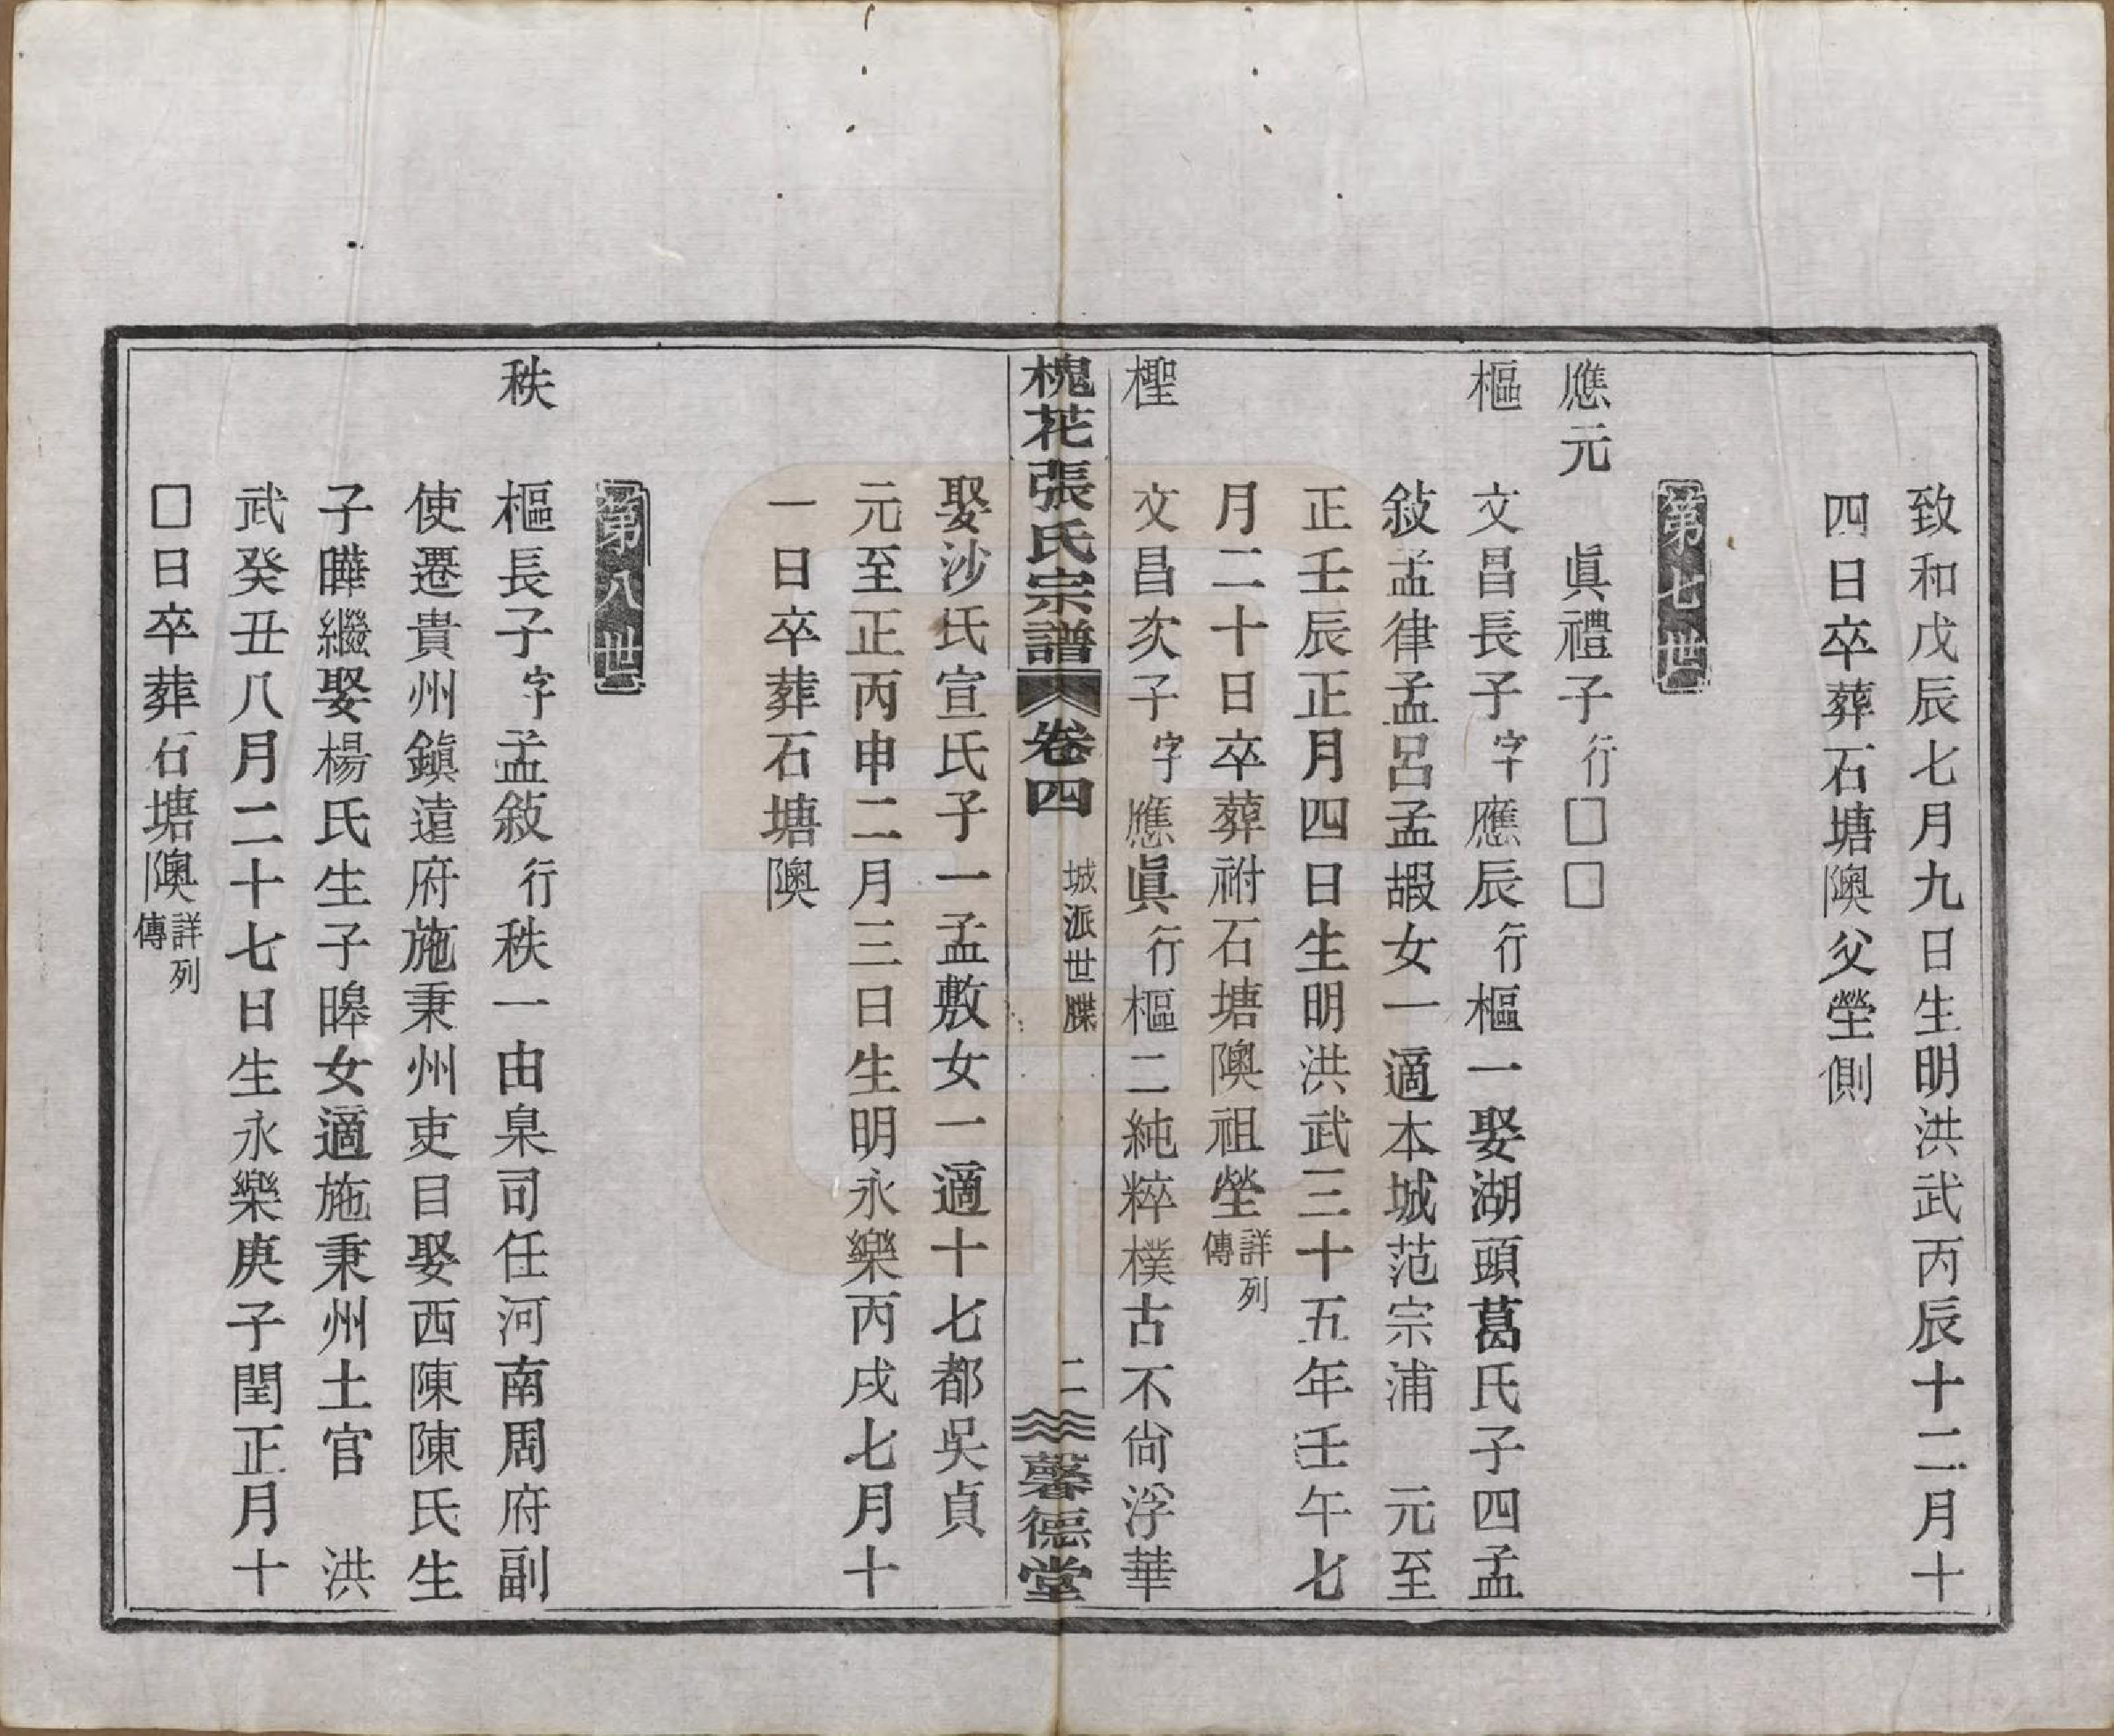 致和戊辰七月九日生明洪武丙辰十二月十
四日卒葬石塘隩父塋側
第七世
應元　眞禮子行□□
樞　文昌長子字應辰行樞一娶湖頭葛氏子四孟
敍孟律孟呂孟嘏女一適本城范宗浦　元至
正壬辰正月四日生明洪武三十五年壬午七
月二十日卒葬祔石塘隩祖塋詳列傳
檉　文昌次子字應眞行樞二純粹樸古不尙浮華
槐花張氏宗譜　卷四　城派世牒　二　馨德堂
娶沙氏宣氏子一孟敷女一適十七都吳貞
元至正丙申二月三日生明永樂丙戌七月十
一日卒葬石塘隩
第八世
秩　樞長子字孟敍行秩一由臬司任河南周府副
使遷貴州鎮遠府施秉州吏目娶西陳陳氏生
子曄繼娶楊氏生子暤女適施秉州土官　洪
武癸丑八月二十七日生永樂庚子閏正月十
□日卒葬石塘隩詳列傳